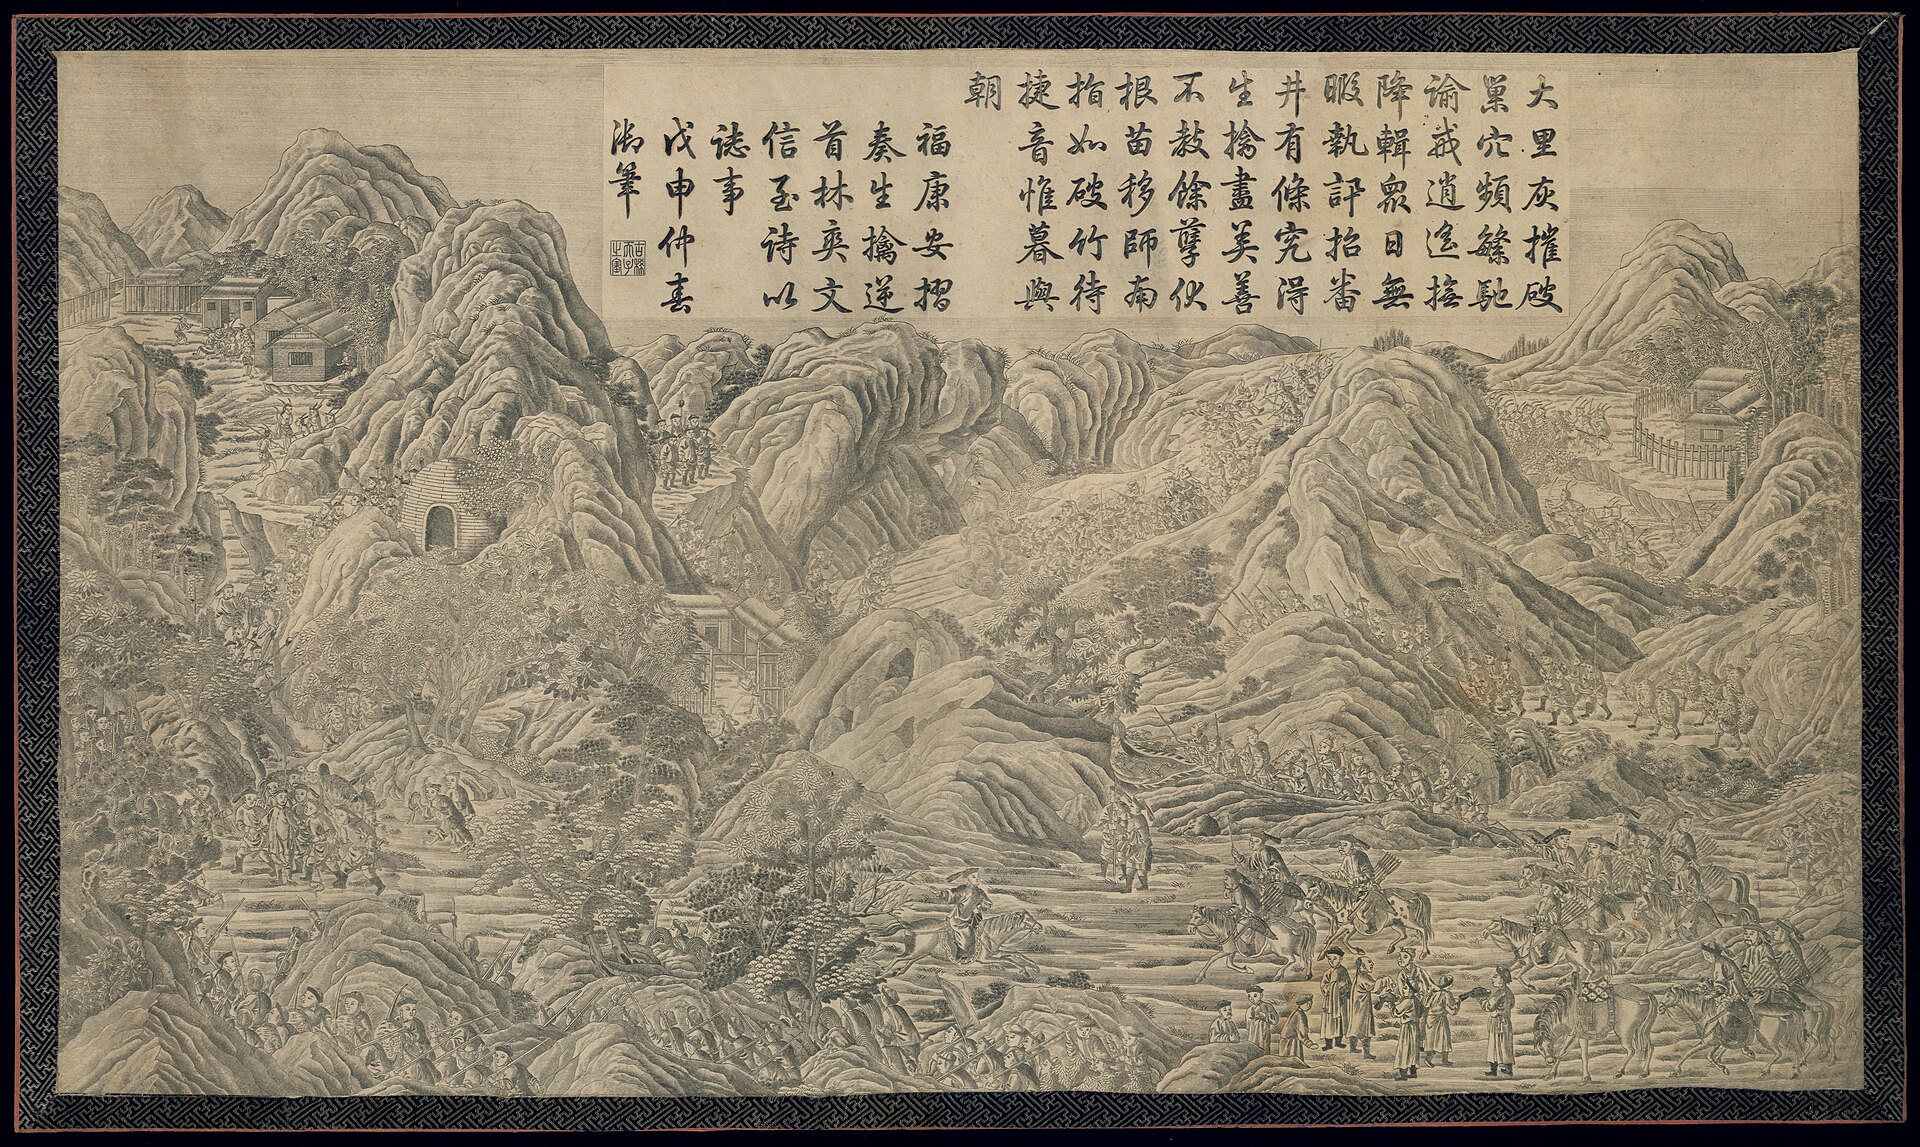 大里灰摧破
巢穴頻繁馳
諭戒逍遙撫
降輯眾日無
暇執訊招番
井有條究得
生擒盡美善
不教餘孽伏
根苗移師南
指如破竹待
捷音惟暮與
朝
福康安摺
奏生擒逆
首林爽文
信至詩以
誌事
戊申仲春
御筆
古稀天子之寶